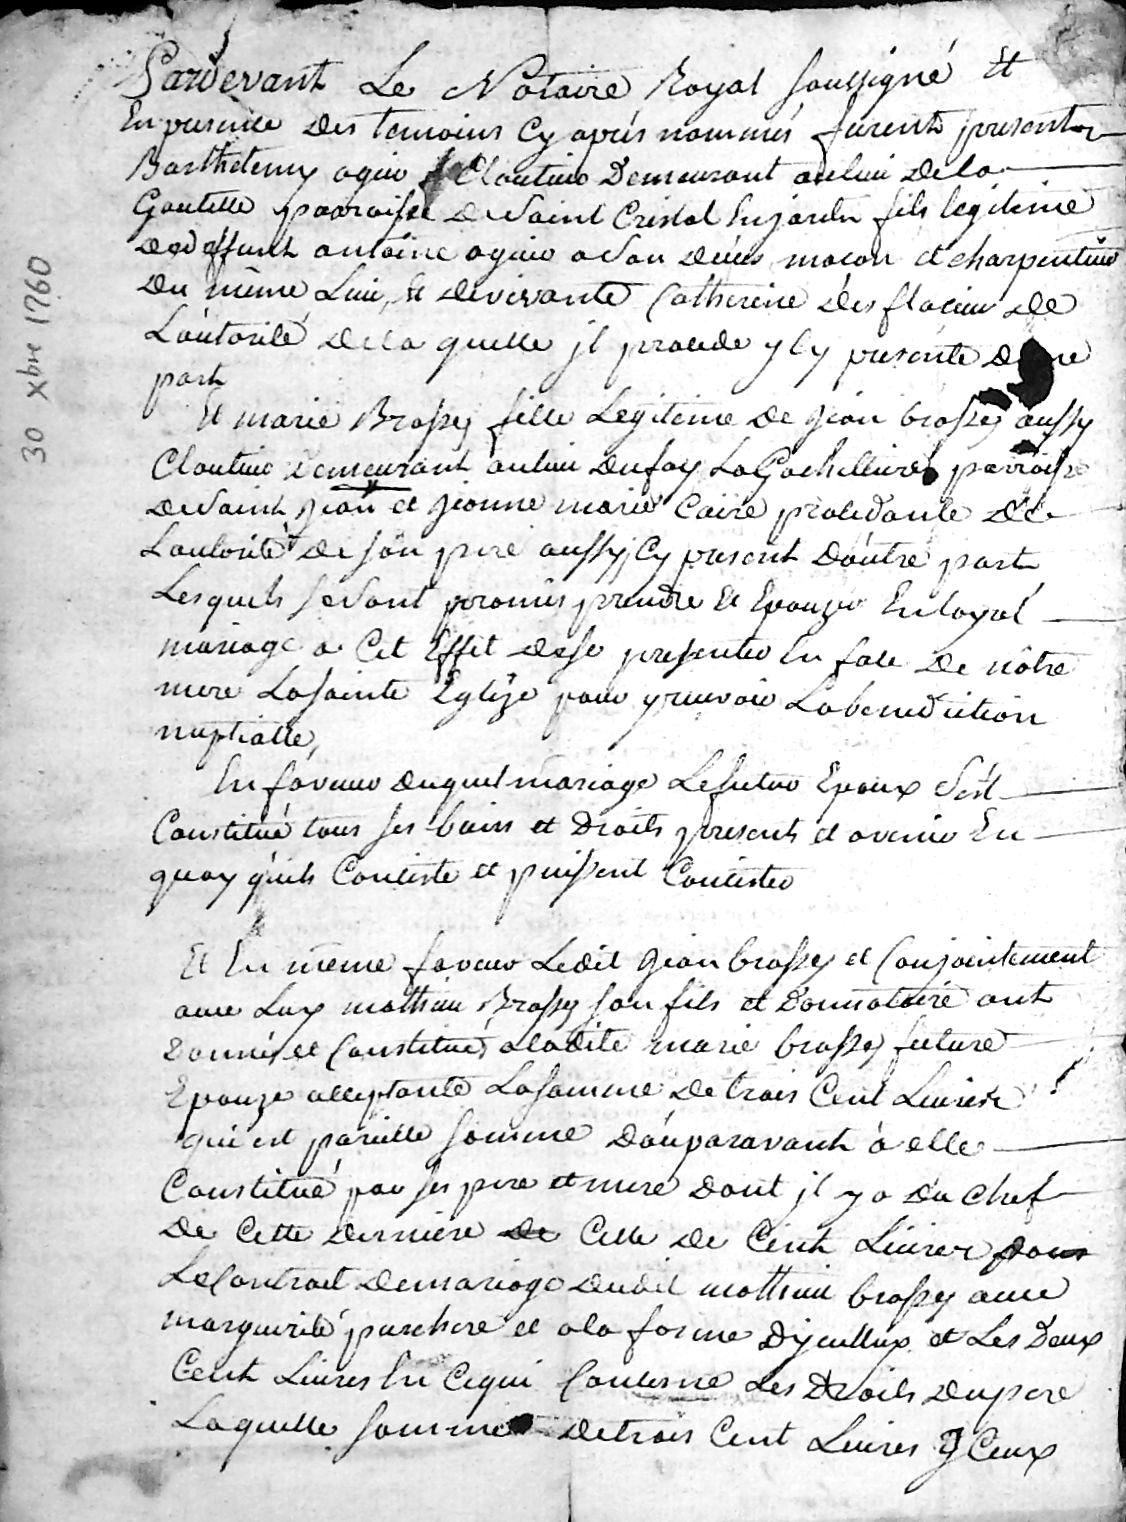 30 xbre 1760
Pardevant Le Notaire Royal soussigné Et
En presence des temoins Cy aprés nommés furent presents
Barthelemy ogier Cloutier Demeurant aulieu dela
Goutelle parroisse de Saint Cristol Enjarets fils legitime
dedeffunt antoine ogier a son deces macon et charpentier
du même Lieu, et devivante Catherine des flacieu de
Lautorité dela quelle jl procede y Cy presente dune
part
Et marie Brossy fille Legitime de jean brossy aussy
Cloutier demeurant aulieu dufay LaGachelliere parroisse
de Saint jean et jeanne marie Caire procedante de
Lautorité de son pere aussy Cy present dautre part
Lesquels se sont promis prendre Et Epouzer En loyal
mariage a Cet Effet desse presenter En face de nôtre
mere La sainte Eglize pour y recevoir La benediction
nuptialle,
En faveur duquel mariage Le futur Epoux s'est
Constitué tous ses biens et droits presents et avenir En
quoy quils Consiste et puissent Consister
Et En même faveur Ledit jean brossy et Conjointement
avec Luy mathieu Brossy son fils et donnataire ont
donné et Constitué aladite marie brossy future
Epouze acceptante La somme de trois Cent Livres
qui est pareille somme dauparavant à elle
Constitué par ses pere et mere dont jl y a du chef
de Cette derniere de Celle de Cent Livres dans
Le Contrait de mariage dudit mathieu brossy avec
marguerite parchere et a la forme dyceluy et Les deux
Cent Livres En Cequi Concerne Les droits du pere
Laquelle somme de trois Cent Livres jCeux